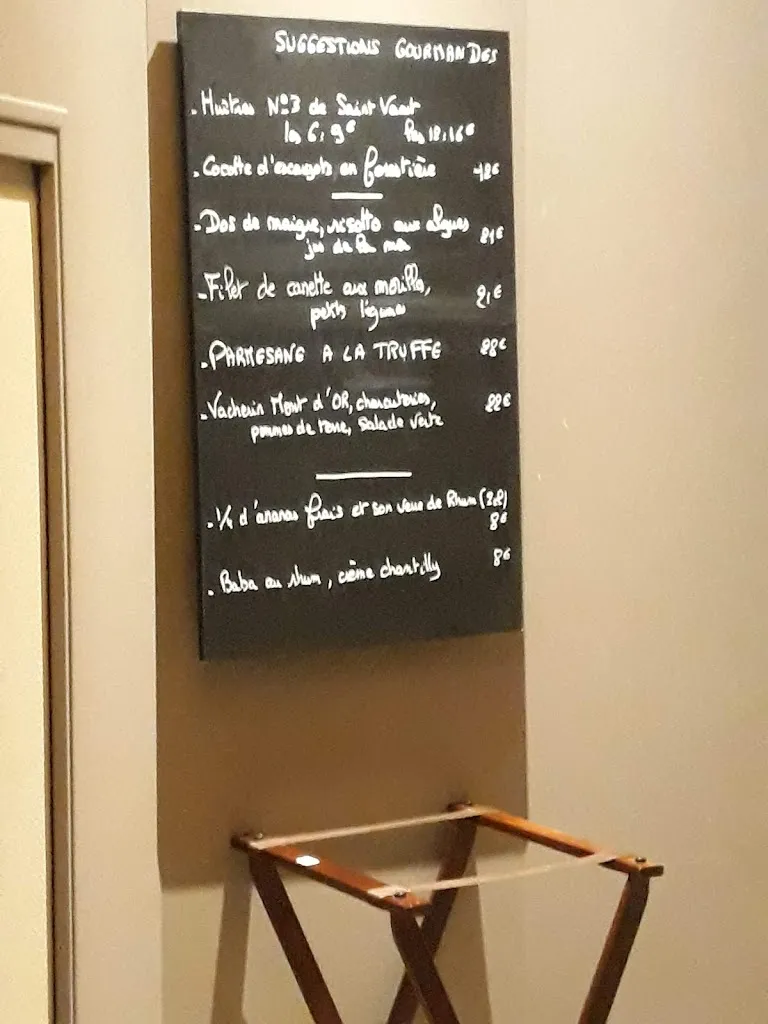 SUGGESTIONS GOURMANDES
. Huîtres N°3 de Saint Vaast
les 6, 9€ les 12, 16€
. Cocotte d'escargots en forestière
- Dos de maigre, risotto aux algues
jus de la mer
- Filet de canette aux morilles,
petits légumes
. PARMESANE A LA TRUFFE 22€
. Vacherin Mont d'OR, charcuteries, 22€
pommes de terre, salade verte
. 1/4 d'ananas frais et son verre de Rhum (2cl)
8€
. Baba au rhum, crème chantilly 8€